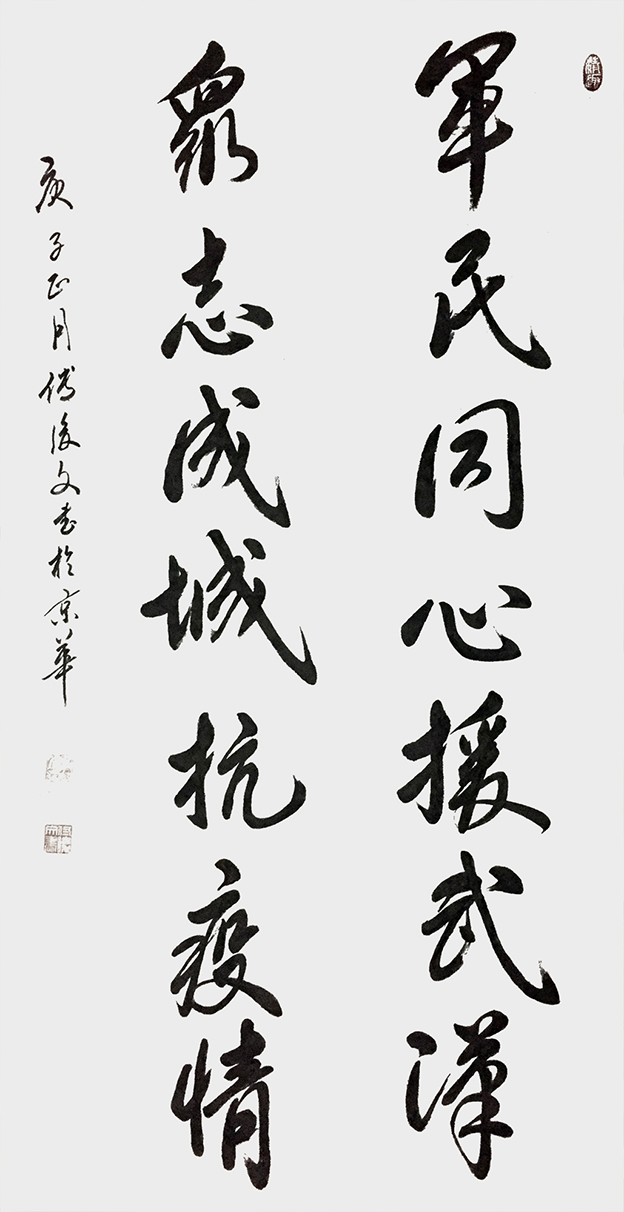 軍民同心援武漢
眾志成城抗疫情
庚子正月傅後文書於京華